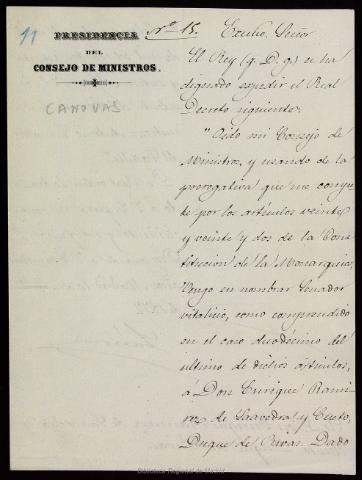 11
PRESIDENCIA
DEL
CONSEJO DE MINISTROS.
CANOVAS
Nº 15.
Excmo. Señor
El Rey (q. D. g.) se ha
dignado expedir el Real
Decreto siguiente:
"Oido mi Consejo de
Ministros, y usando de la
prerogativa que me compe-
te por los artículos veinte
y veinte y dos de la Cons-
titucion de la Monarquia,
Vengo en nombrar Senador
vitalicio, como comprendido
en el caso duodécimo del
ultimo de dichos artículos,
a Don Enrique Rami-
rez de Saavedra y Cueto,
Duque de Rivas. Dado
Biblioteca Regional de Madrid